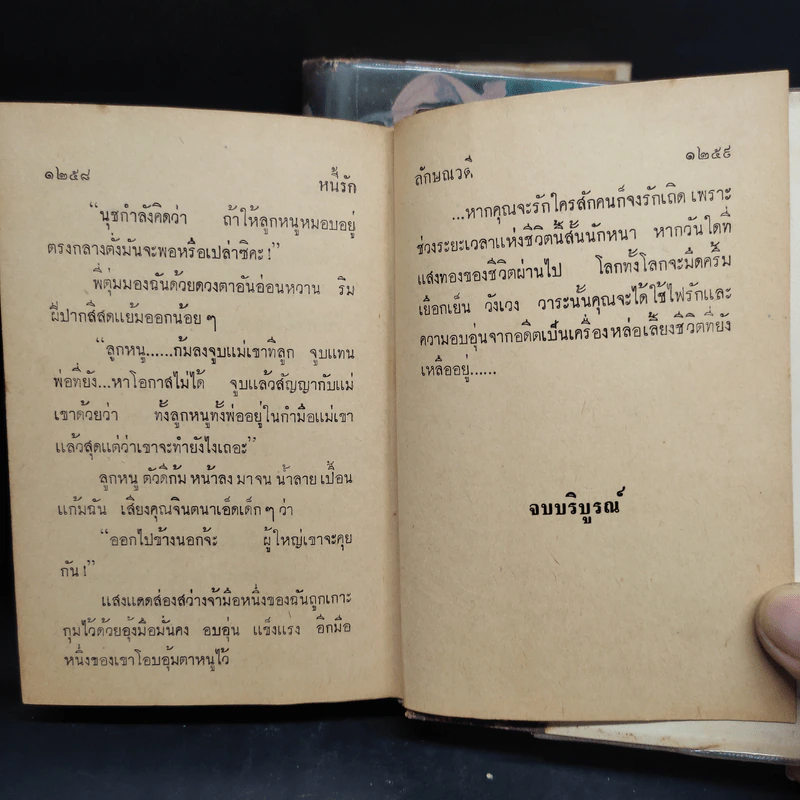 ๑๒๕๘ หนี้รัก
“นุชกำลังคิดว่า ถ้าให้ลูกหนูหมอบอยู่
ตรงกลางตั่งมันจะพอหรือเปล่าซิคะ!”
พี่ตุ่มมองฉันด้วยดวงตาอันอ่อนหวาน ริม
ฝีปากสีสดแย้มออกน้อย ๆ
“ลูกหนู......ก้มลงจูบแม่เขาทีลูก จูบแทน
พ่อทียัง...หาโอกาสไม่ได้ จูบแล้วสัญญากับแม่
เขาด้วยว่า ทั้งลูกหนูทั้งพ่ออยู่ในกำมือแม่เขา
แล้วสุดแต่ว่าเขาจะทำยังไงเถอะ”
ลูกหนู ตัวดีก้ม หน้าลง มาจน น้ำลาย เปื้อน
แก้มฉัน เสียงคุณจินตนาเอ็ดเด็ก ๆ ว่า
“ออกไปข้างนอกจ้ะ ผู้ใหญ่เขาจะคุย
กัน!”
แสงแดดส่องสว่างจ้ามือหนึ่งของฉันถูกเกาะ
กุมไว้ด้วยอุ้งมือมั่นคง อบอุ่น แข็งแรง อีกมือ
หนึ่งของเขาโอบอุ้มตาหนูไว้
ลักษณวดี ๑๒๕๙
...หากคุณจะรักใครสักคนก็จงรักเถิด เพราะ
ช่วงระยะเวลาแห่งชีวิตนี้สั้นนักหนา หากวันใดที่
แสงทองของชีวิตผ่านไป โลกทั้งโลกจะมืดครึ้ม
เยือกเย็น วังเวง วาระนั้นคุณจะได้ใช้ไฟรักและ
ความอบอุ่นจากอดีตเป็นเครื่องหล่อเลี้ยงชีวิตที่ยัง
เหลืออยู่......
จบบริบูรณ์